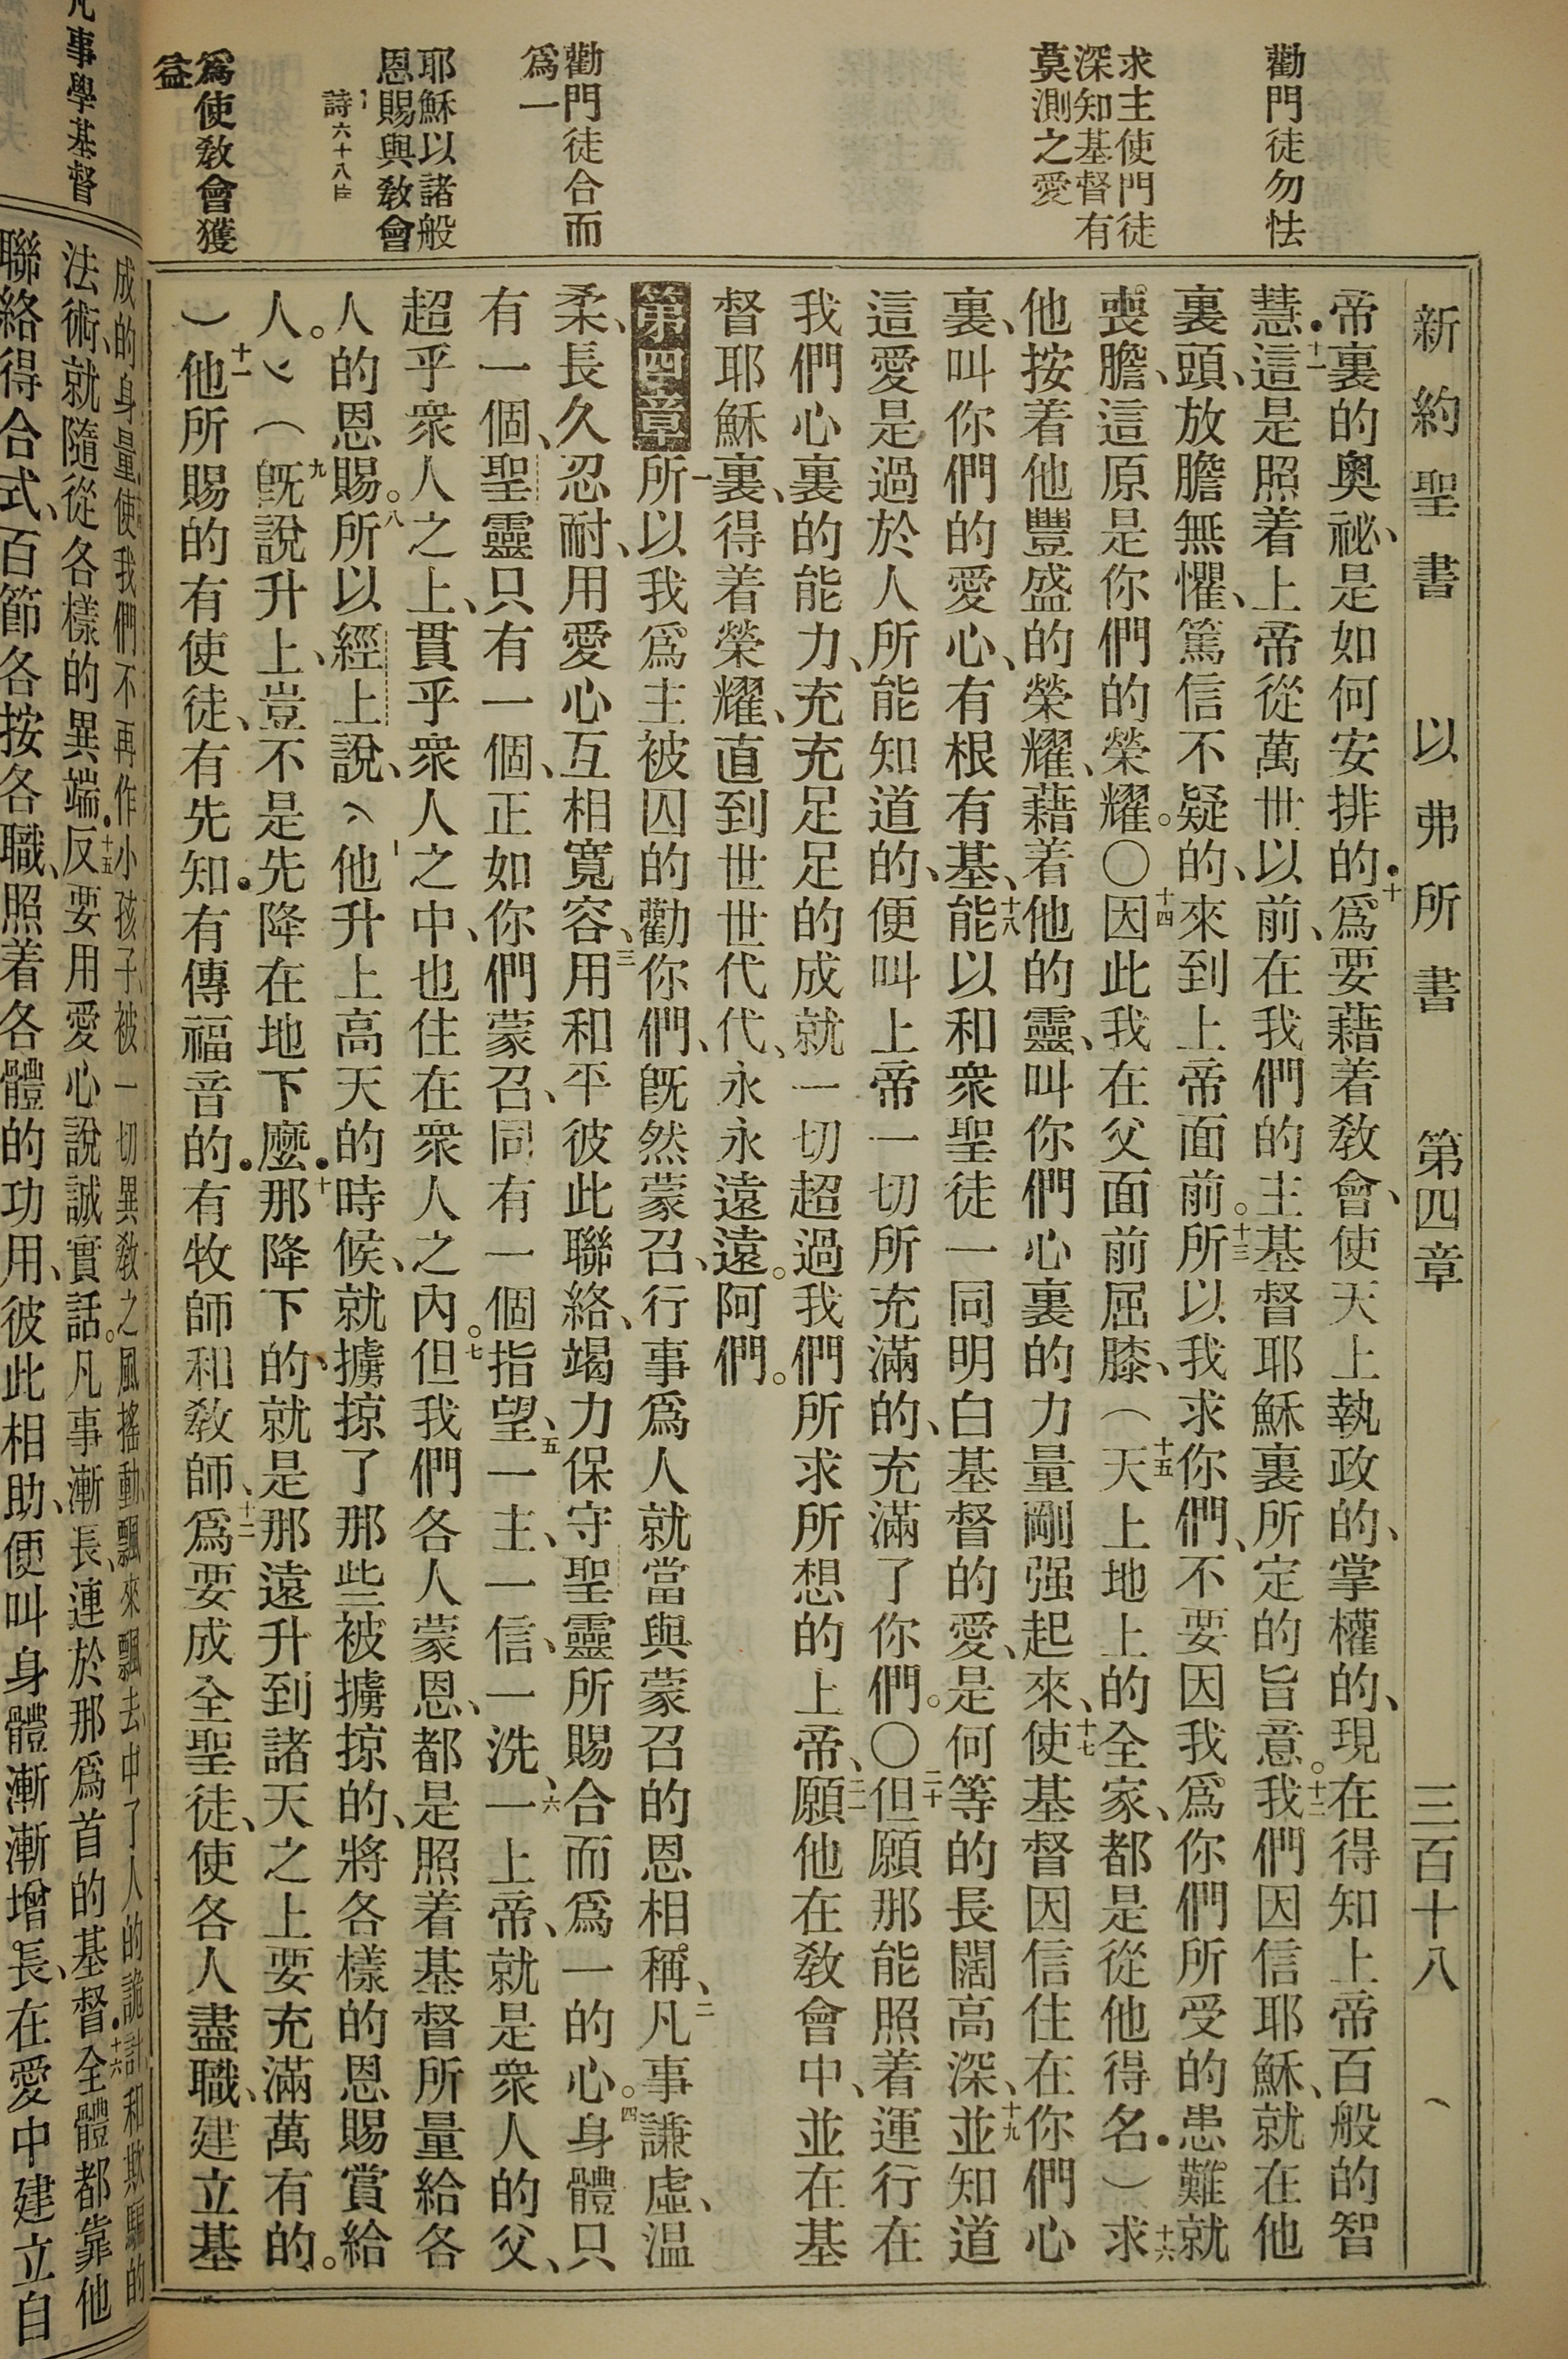 新約聖書 以弗所書 第四章 三百十八
勸門徒勿怯
求主使門徒
深知基督有
莫測之愛
勸門徒合而
爲一
耶穌以諸般
恩賜與敎會
詩六十八
爲使敎會獲
益
帝裏的奧祕、是如何安排的•十爲要藉着敎會、使天上執政的、掌權的、現在得知上帝百般的智
慧•十一這是照着上帝從萬世以前、在我們的主基督耶穌裏所定的旨意。十二我們因信耶穌、就在他
裏頭、放膽無懼、篤信不疑的、來到上帝面前。十三所以我求你們、不要因我爲你們所受的患難、就
喪膽、這原是你們的榮耀。〇十四因此我在父面前屈膝、（十五天上地上的全家、都是從他得名•）十六求
他按着他豐盛的榮耀、藉着他的靈、叫你們心裏的力量剛强起來、十七使基督因信住在你們心
裏、叫你們的愛心、有根有基、十八能以和衆聖徒一同明白基督的愛、是何等的長闊高深、十九並知道
這愛是過於人所能知道的、便叫上帝一切所充滿的、充滿了你們。〇二十但願那能照着運行在
我們心裏的能力、充充足足的成就一切超過我們所求所想的上帝、二一願他在敎會中、並在基
督耶穌裏、得着榮耀、直到世世代代、永永遠遠。阿們。
第四章 一所以我爲主被囚的勸你們、旣然蒙召、行事爲人就當與蒙召的恩相稱、二凡事謙虛、温
柔、長久忍耐、用愛心互相寬容、三用和平彼此聯絡、竭力保守聖靈所賜合而爲一的心。四身體只
有一個、聖靈只有一個、正如你們蒙召、同有一個指望、五一主、一信、一洗、六一上帝、就是衆人的父、
超乎衆人之上、貫乎衆人之中、也住在衆人之內。七但我們各人蒙恩、都是照着基督所量給各
人的恩賜。八所以經上說、他升上高天的時候、就擄掠了那些被擄掠的、將各樣的恩賜賞給
人。（九旣說升上、豈不是先降在地下麽•十那降下的、就是那遠升到諸天之上要充滿萬有的。
）十一他所賜的有使徒、有先知•有傳福音的•有牧師和敎師、十二爲要成全聖徒、使各人盡職、建立基
事學基督
成的身量、使我們不再作小孩子、被一切異敎之風搖動、飄來飄去、中了人的詭計和欺騙的
法術、就隨從各樣的異端•十五反要用愛心說誠實話。凡事漸長、連於那爲首的基督•十六全體都靠他
聯絡得合式、百節各按各職、照着各體的功用、彼此相助、便叫身體漸漸增長、在愛中建立自